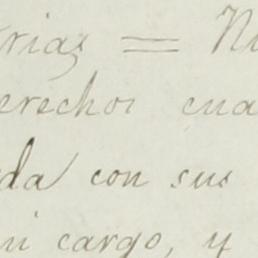 rias = Nu
erechos cua
da con sus
mi cargo, y